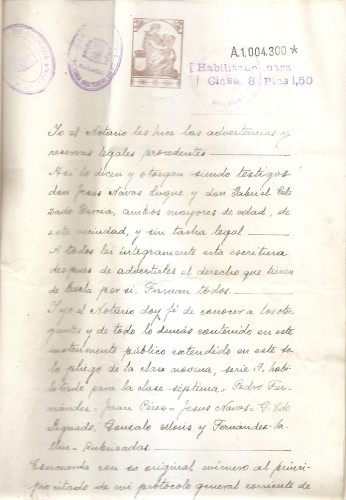 A1.004.300*
Habilitado para
Clase 8ª Ptas 1,50
Yo el Notario les hice las advertencias y
reservas legales procedentes
Asi lo dicen y otorgan siendo testigos
don Jesús Navas Duque y don Gabriel Cal
zado Garcia, ambos mayores de edad, de
esta vecindad, y sin tacha legal
A todos lei integramente esta escritura
despues de advertirles el derecho que tienen
de leerla por si. Firman todos.
Y yo el Notario doy fé de conocer a los otor
gantes y de todo lo demás contenido en este
instrumento público extendido en este so
lo pliego de la clase novena, serie A, habi
litado para la clase septima - Pedro Fer
nández - Juan Pérez - Jesus Navas - G.
Signado, Gonzalo y Fernández-
Rubricadas.
Concuerda con su original número al princi
pio citado de mi protocolo general corriente de